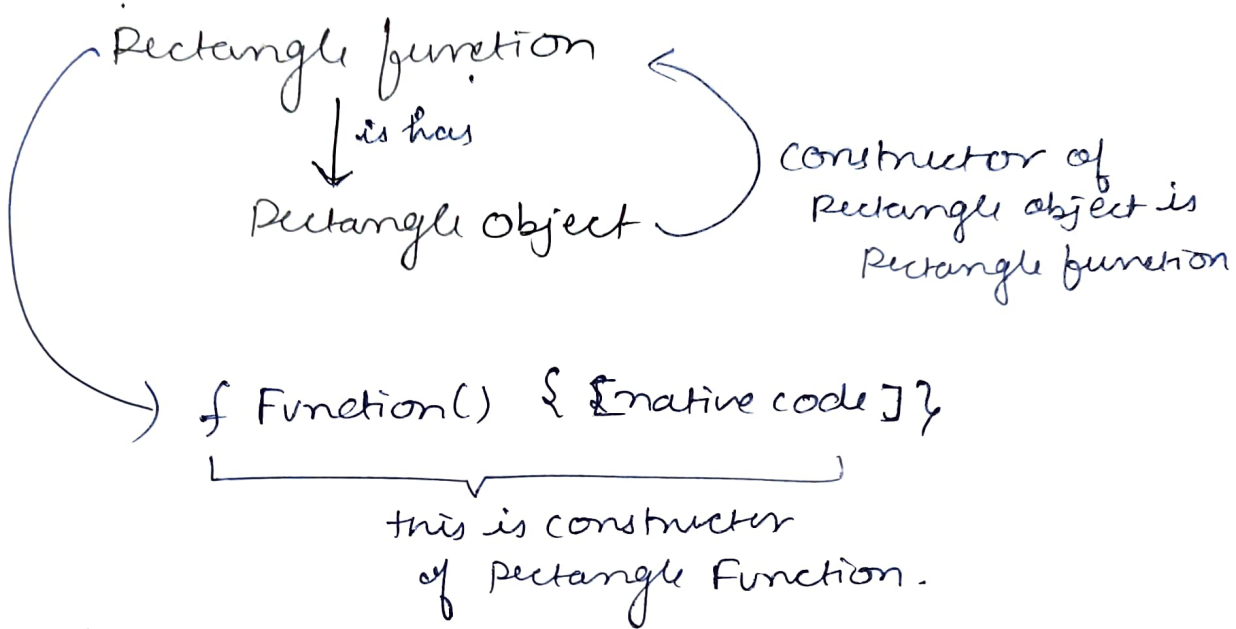 Rectangle function
is has
Rectangle object
constructor of
Rectangle object is
Rectangle function
f Function() { [native code] }
this is constructer
of Rectangle Function.